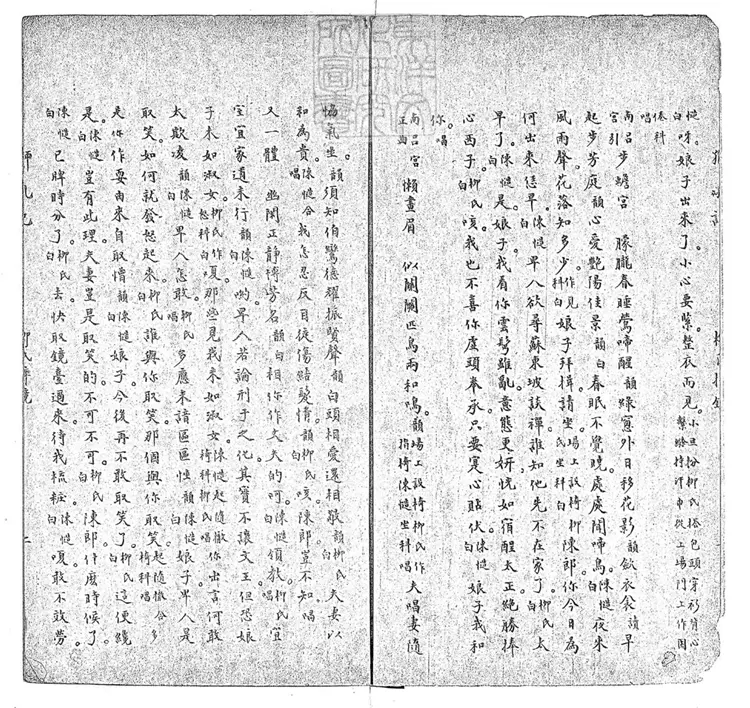 慥白呀娘子出來了小心要緊整衣而見。小旦扮柳氏搭包頭穿衫背心繫裙持汗巾從上場門上作困
倦科唱
南呂宮引 步蟾宮 朦朧春睡鶯啼醒韻綠窗外日移花影韻歛衣裳讀早
起步芳庭韻心愛艷陽佳景韻白春眠不覺曉。處處聞啼鳥。陳慥白夜來
風雨聲。花落知多少。作見科白娘子拜揖。請坐。場上設椅柳氏坐科白陳郎你今日為
何出來恁早。陳慥白卑人欲尋蘇東坡談禪誰知他先不在家了。柳氏白太
早了。陳慥白是娘子我看你雲髩雖亂意態更妍恍如宿酲太正絶勝捧
心西子。柳氏白咳我也不喜你虛頭奉承只要寔心貼伏。陳慥白娘子我和
你。唱
南呂宮正曲 懶畫眉 似關關匹鳥兩和鳴。韻場上設椅柳氏作指椅陳慥坐科唱夫唱妻隨
恊氣生。韻須知伯鸞德耀振賢聲韻白頭相愛還相敬韻柳氏白夫妻以
和為貴。陳慥合唱我怎忍反目徒傷結髮情。韻柳氏白咳陳郎豈不知唱
又一體 幽閒正靜博芳名韻白相你作丈夫的呵陳慥白領教。柳氏唱宜
室宜家道未行韻陳慥白喲卑人若論刑于之化其實不讓文王但恐娘
子未如淑女。柳氏作怒科白嗄那些見我未如淑女。陳慥起隨撤椅科柳氏唱你出言何敢
太欺凌韻陳慥白卑人怎敢。柳氏唱多應未諳區區性韻陳慥白娘子卑人是
取笑。如何就發怒起來。柳氏白誰與你取笑那個與你取笑。起隨撤椅科唱合多
是你作耍由來自取憎韻陳慥白娘子今後再不敢取笑了。柳氏白這便纔
是。陳慥白豈有此理夫妻豈是取笑的不可不可。柳氏白陳郎什麼時候了。
陳慥白已牌時分了。柳氏白去快取鏡臺過來待我梳粧。陳慥白嗄敢不效勞。